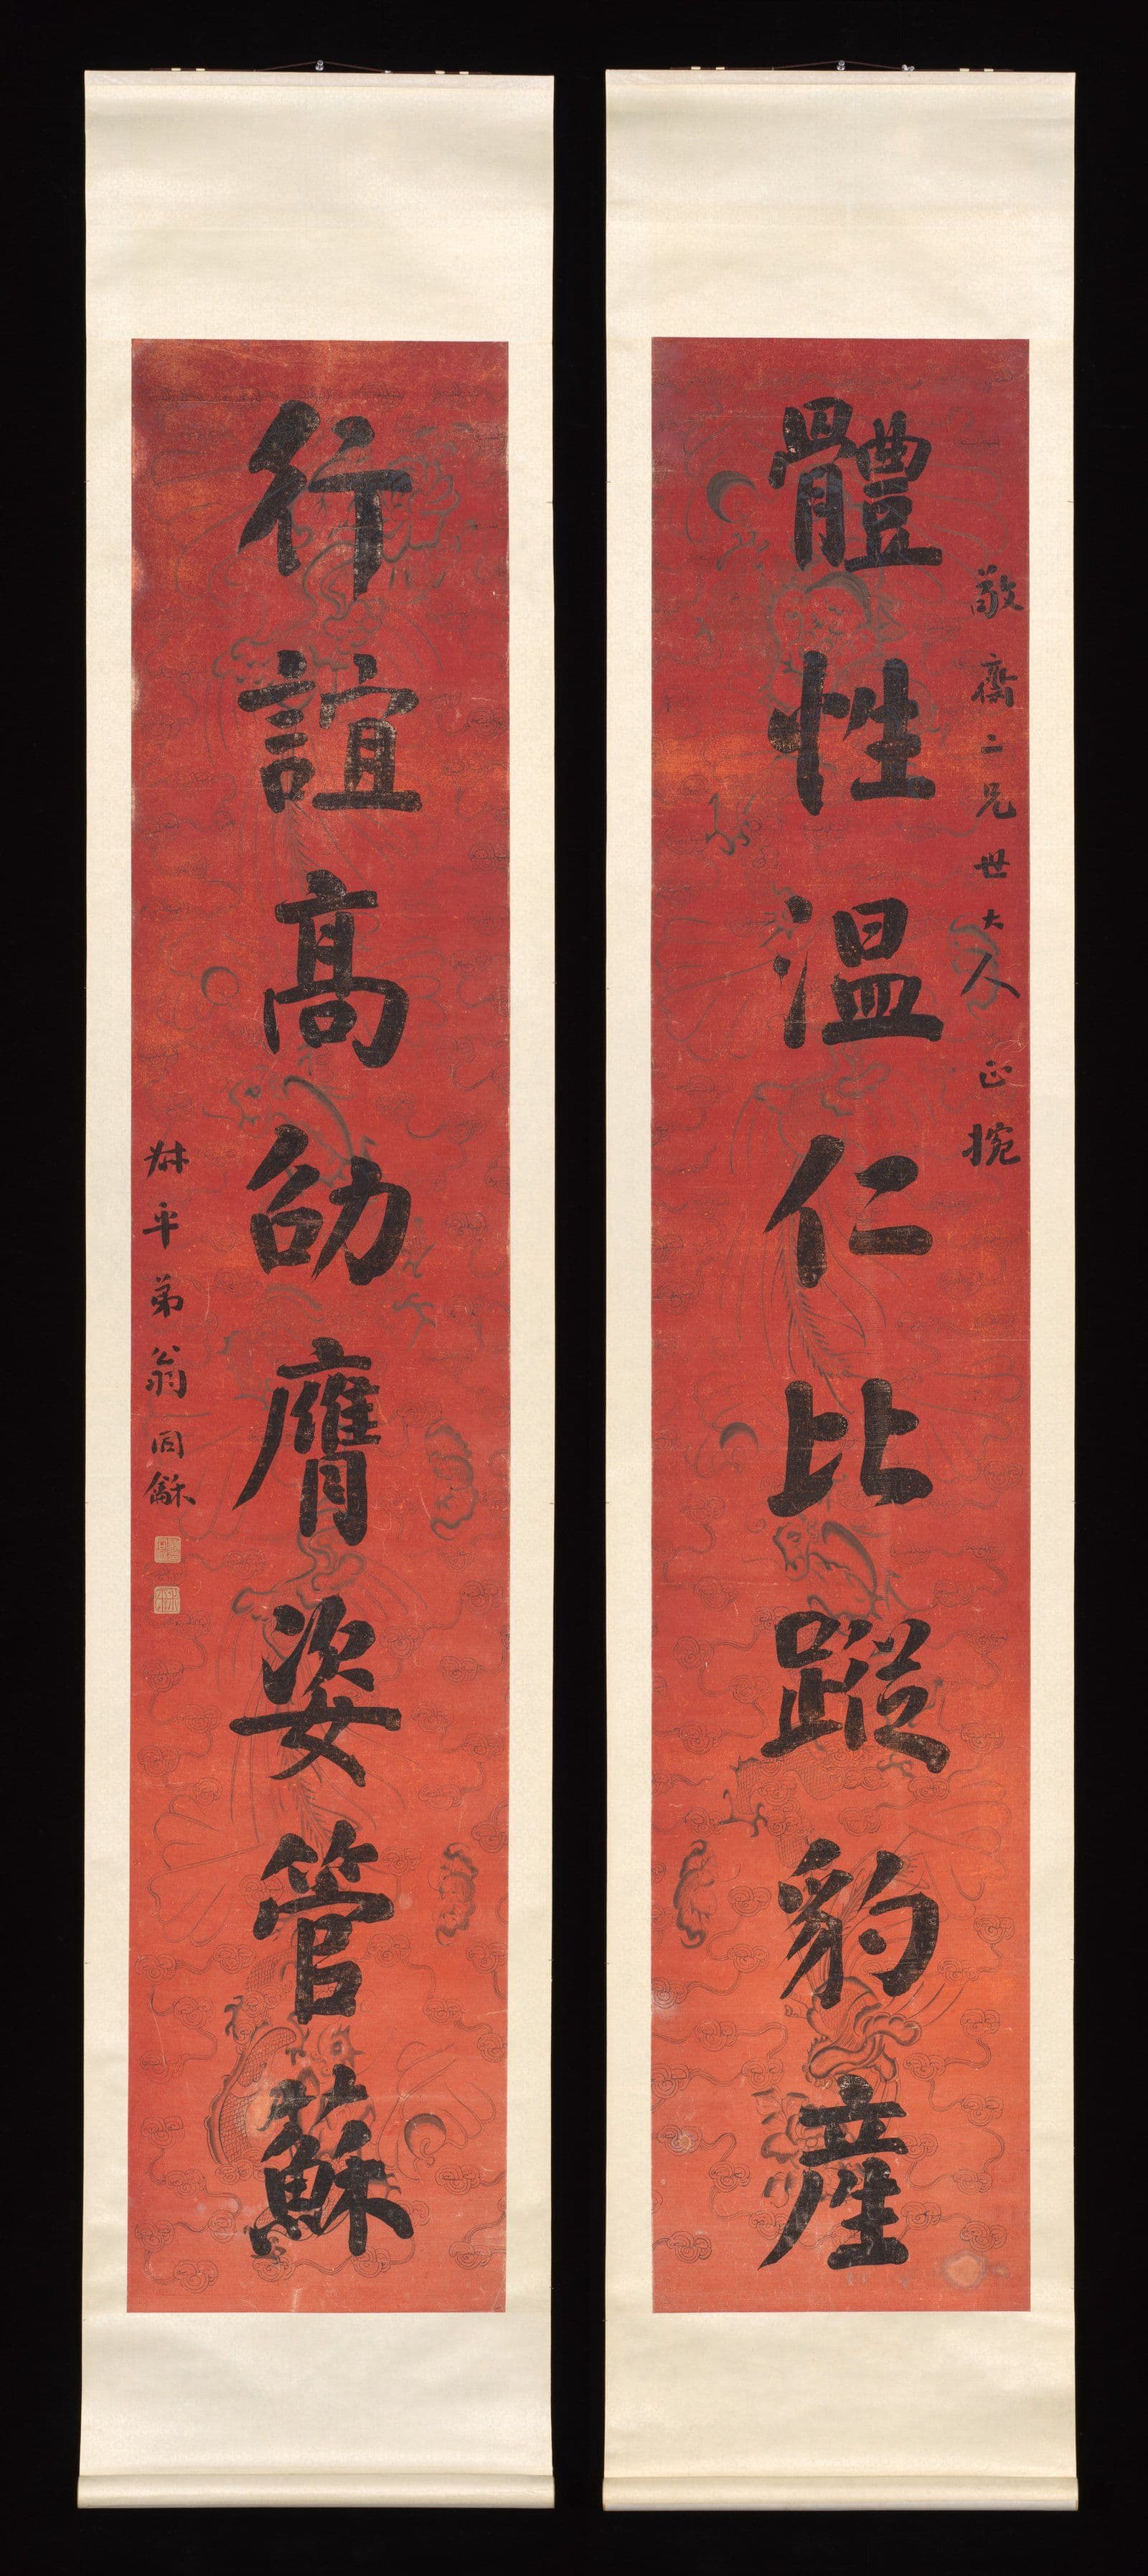 敬齋二兄世大人正捥
體性温仁比蹤豹産
行誼高劭膺姿管蘇
叔平弟翁同龢